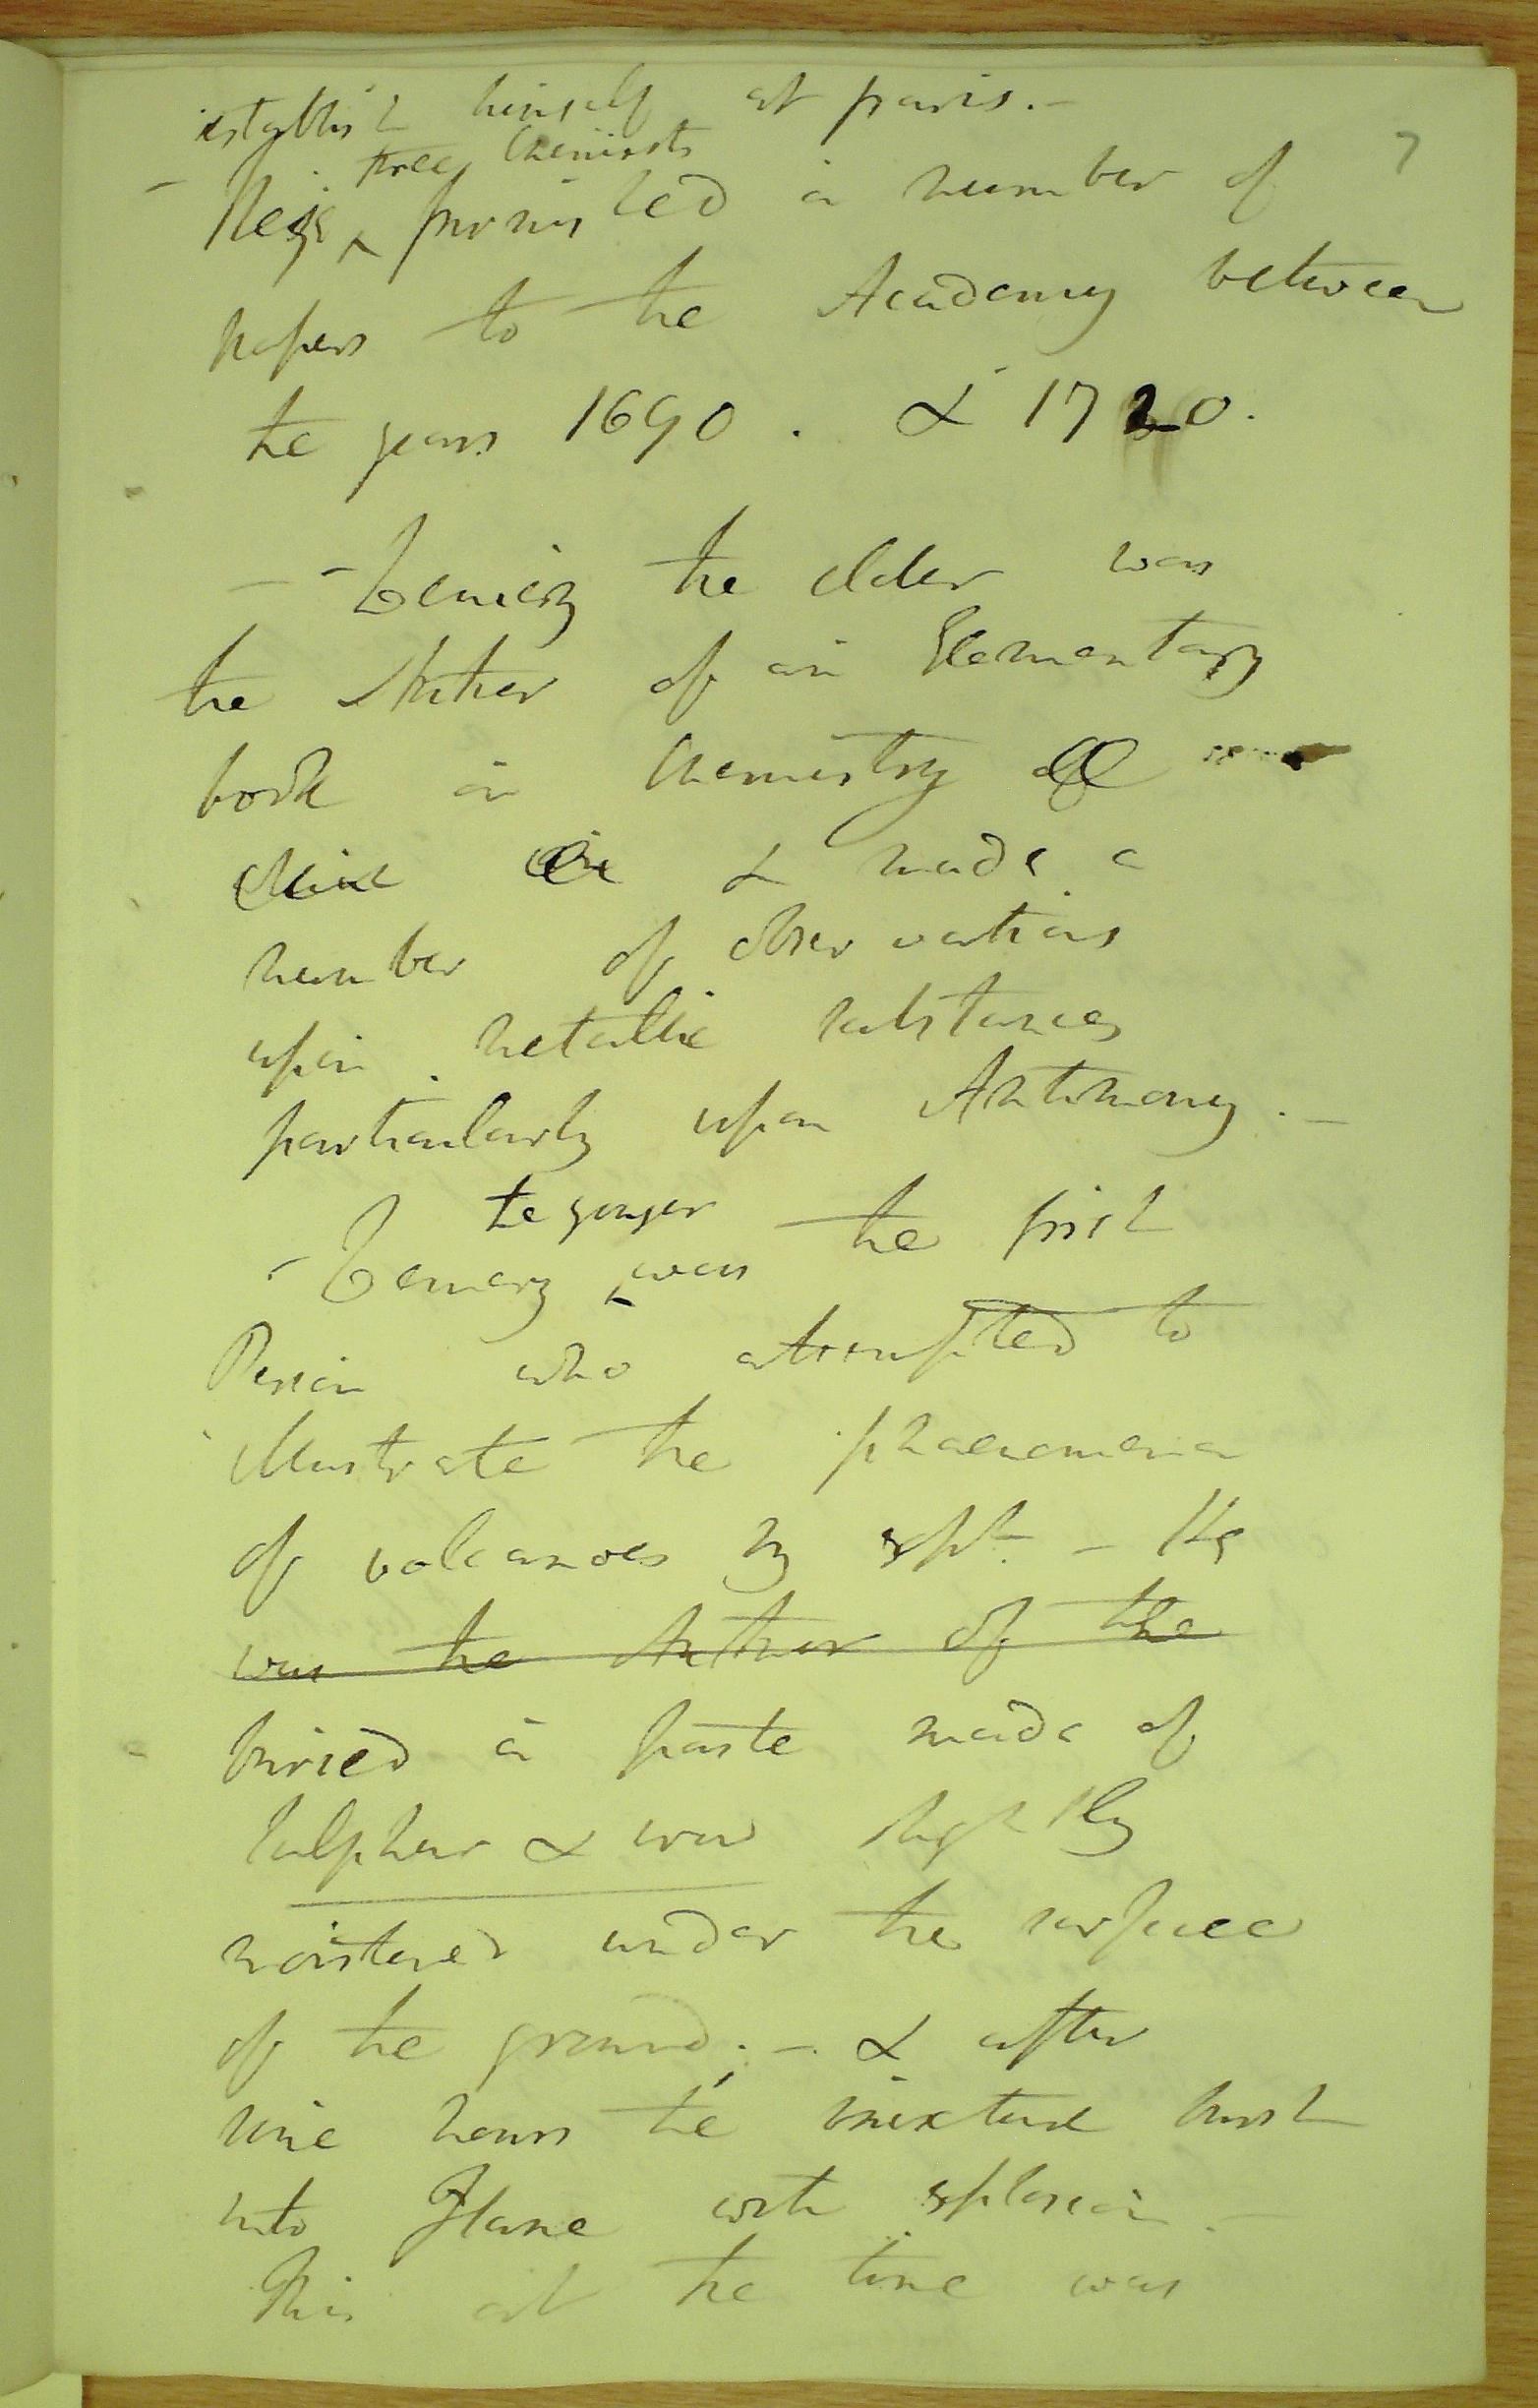 establish himself at paris. -
7
three Chemists
- These ^ furnished a number of
papers to the Academy between
the years 1690. & 1720.
- - Lemery the elder was
the Author of an Elementary
book in Chemistry
& made a
number of observations
upon metallic substances
particularly upon Antimony. -
the younger
- Lemery ^ was the first
Person who attempted to
illustrate the phaenomena
of volcanoes by expt. - He
was the Author of the
buried a paste made of
Sulphur & iron slightly
moistened under the surface
of the ground; - & after
nine hours the mixture burst
into Flame with explosion. -
This at the time was